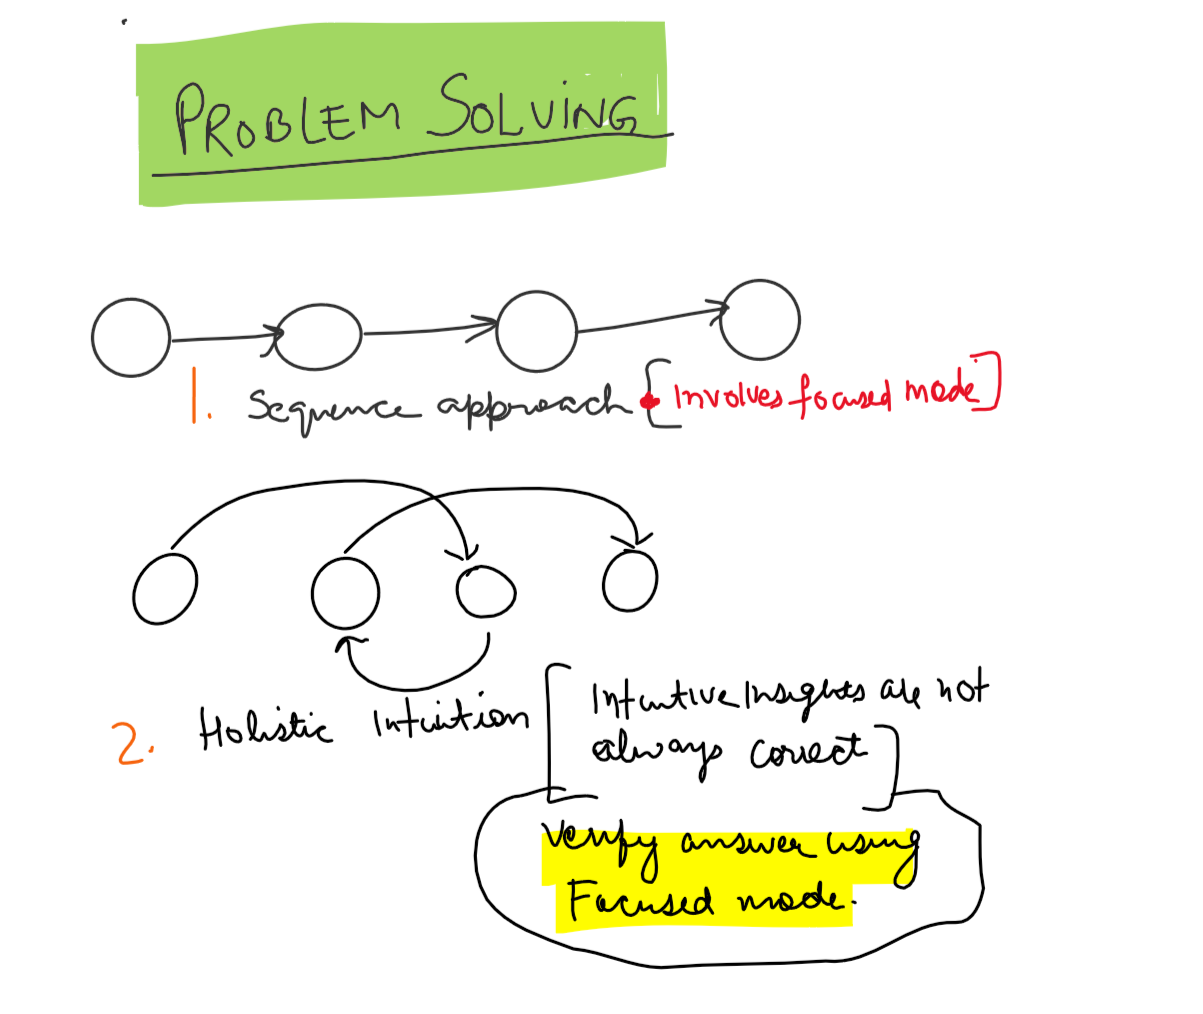 PROBLEM SOLVING
1. Sequence approach [Involves focused mode]
2. Holistic Intuition [Intuitive Insights are not
always correct]
Verify answer using
Focused mode.